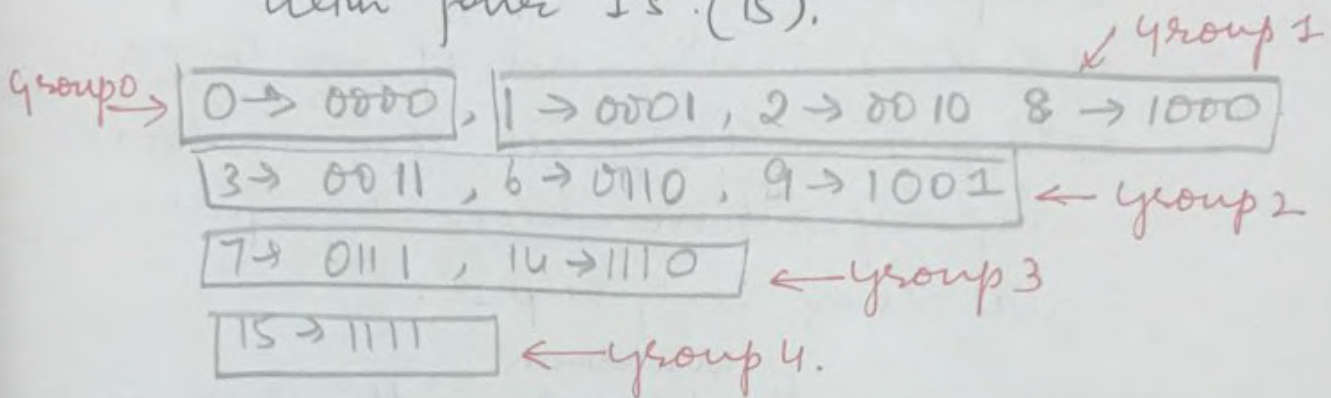 15 (15).
group 1
group0 → 0 → 0000 , 1 → 0001 , 2 → 0010 8 → 1000
3 → 0011 , 6 → 0110 , 9 → 1001 ← group 2
7 → 0111 , 14 → 1110 ← group 3
15 → 1111 ← group 4.